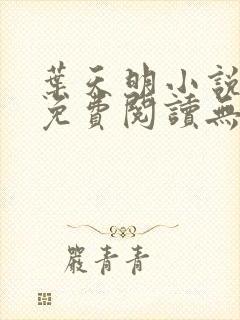 葉天明小說
免費閱讀無
嚴青青